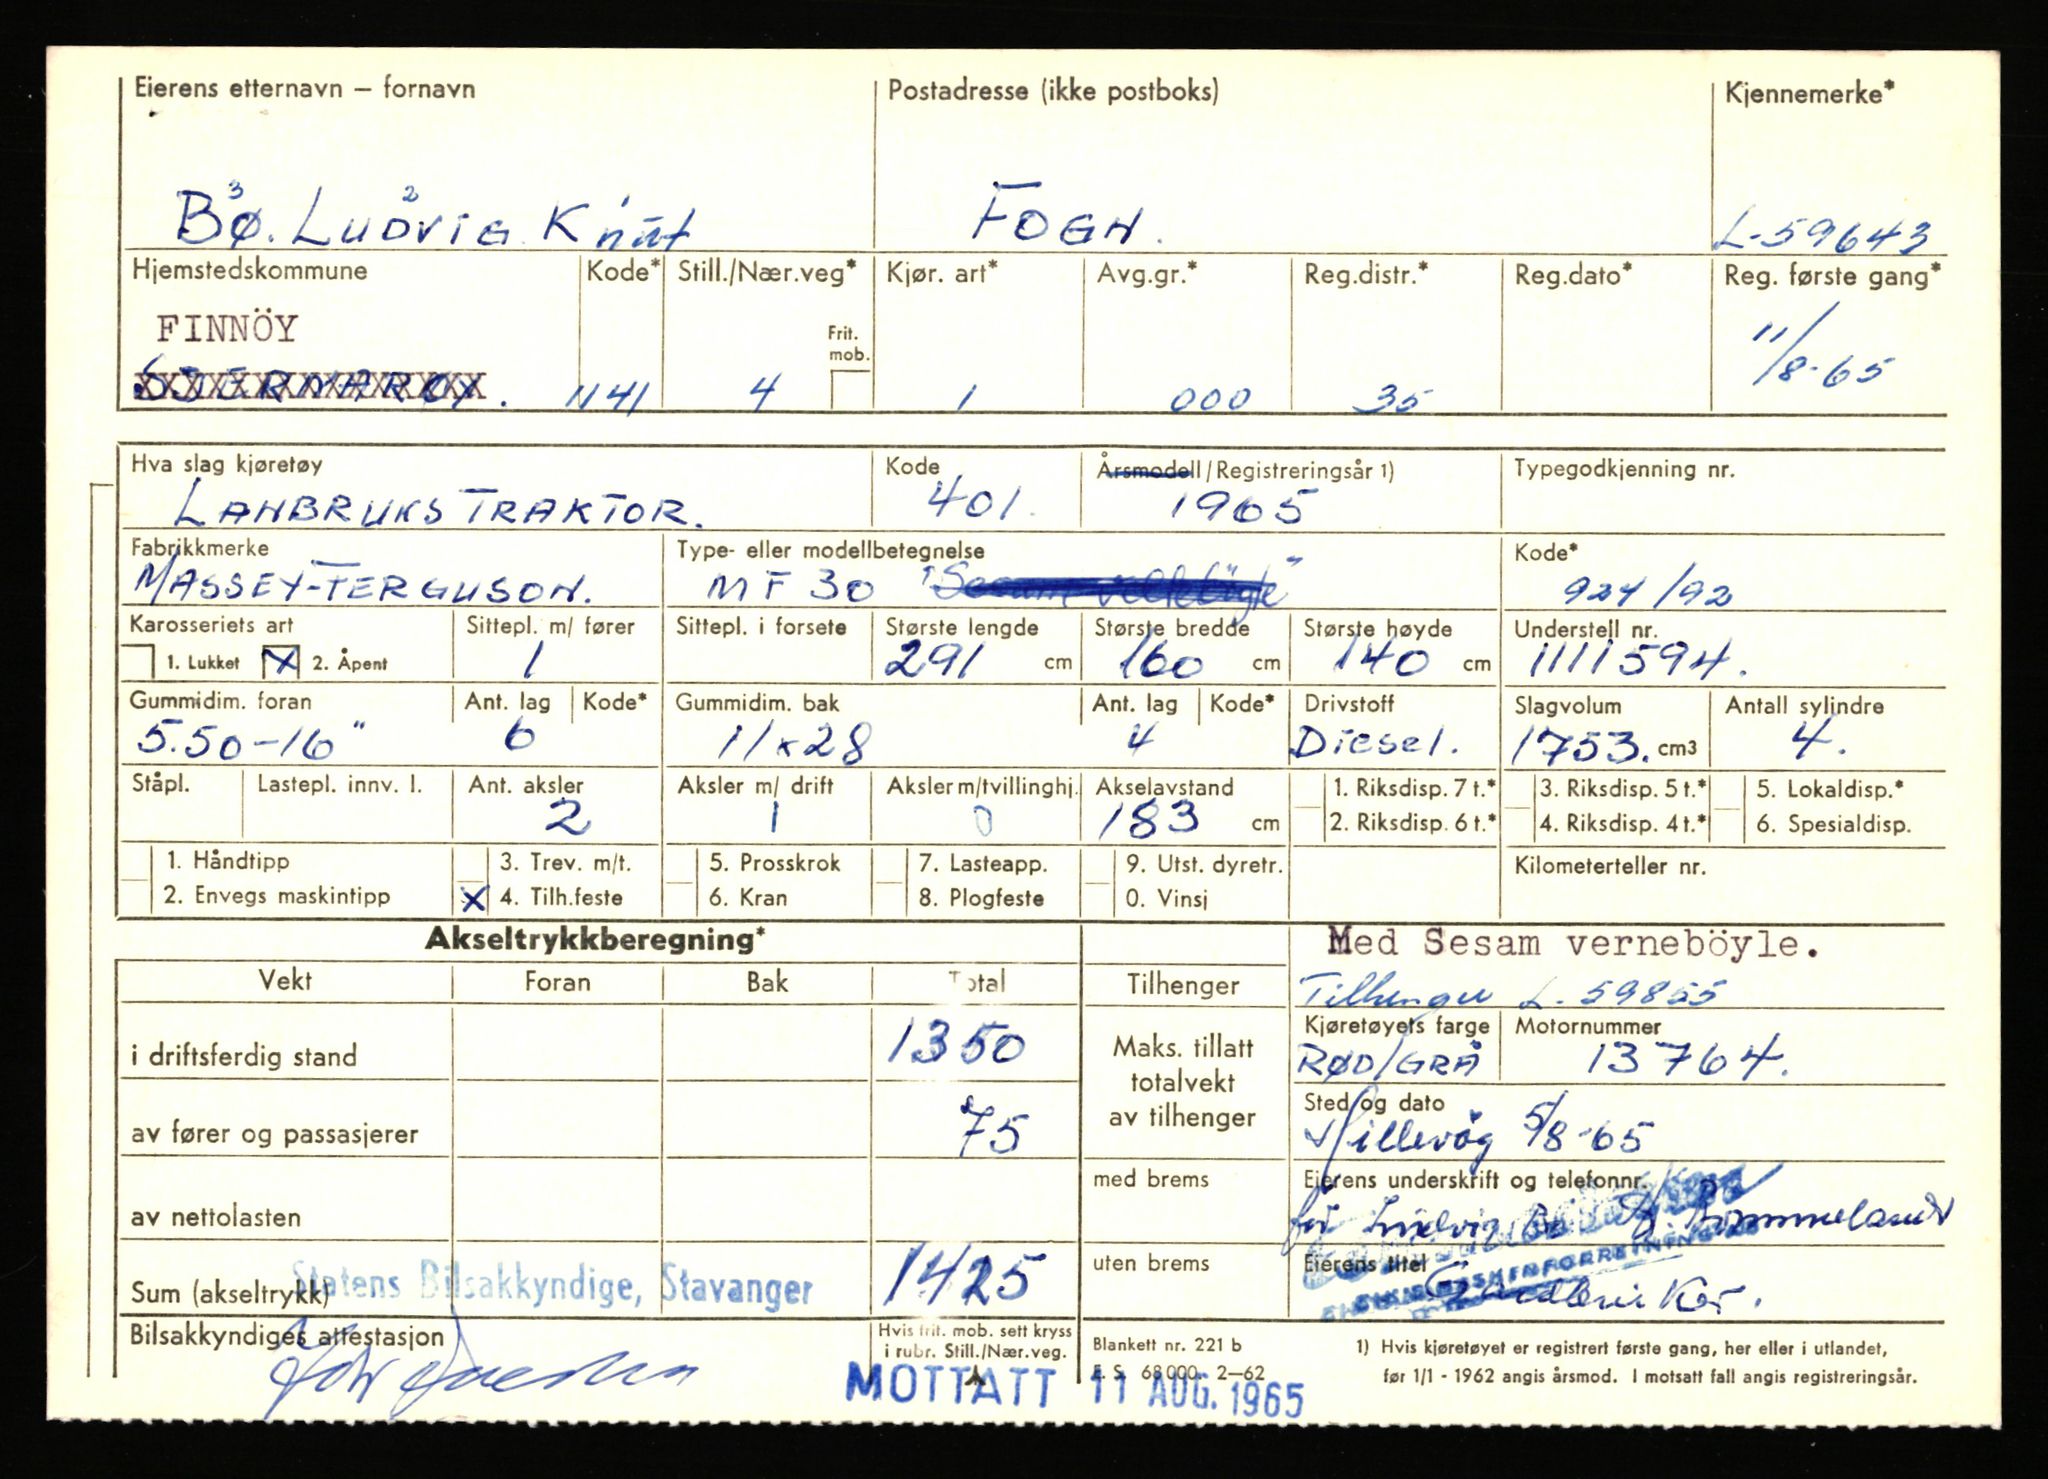 Eierens etternavn – fornavn Postadresse (ikke postboks) Kjennemerke*
3 2 1
BØ. LUDVIG Knut FOGN. L-59643
Hjemstedskommune Kode* Still./Nær.veg* Kjør. art* Avg.gr.* Reg.distr.* Reg.dato* Reg. første gang*
FINNÖY Frit. mob. 11/8-65
SJERNARØY. 1141 4 1 000 35
Hva slag kjøretøy Kode Årsmodell/Registreringsår 1) Typegodkjenning nr.
LANBRUKSTRAKTOR. 401. 1965
Fabrikkmerke Type- eller modellbetegnelse Kode*
MASSEY-FERGUSON. MF 30 924/92
Karosseriets art Sittepl. m/ fører Sittepl. i forsete Største lengde Største bredde Største høyde Understell nr.
1. Lukket X 2. Åpent 1 291 cm 160 cm 140 cm 1111594.
Gummidim. foran Ant. lag Kode* Gummidim. bak Ant. lag Kode* Drivstoff Slagvolum Antall sylindre
5.50-16" 6 11x28 4 Diesel. 1753. cm3 4.
Ståpl. Lastepl. innv. l. Ant. aksler Aksler m/ drift Aksler m/tvillinghj. Akselavstand 1. Riksdisp. 7 t.* 3. Riksdisp. 5 t.* 5. Lokaldisp.*
2 1 0 183 cm 2. Riksdisp. 6 t.* 4. Riksdisp. 4 t.* 6. Spesialdisp.
1. Håndtipp 3. Trev. m/t. 5. Prosskrok 7. Lasteapp. 9. Utst. dyretr. Kilometerteller nr.
2. Envegs maskintipp X 4. Tilh.feste 6. Kran 8. Plogfeste 0. Vinsj
Akseltrykkberegning* Med Sesam verneböyle.
Vekt Foran Bak Total Tilhenger Tilhenger L. 59855
i driftsferdig stand 1350 Maks. tillatt totalvekt av tilhenger Kjøretøyets farge Motornummer
RØD/GRÅ 13764.
av fører og passasjerer 75 Sted og dato
Hillevåg 5/8-65
av nettolasten med brems Eierens underskrift og telefonnr.
for Ludvig Bø
Sum (akseltrykk) 1425 uten brems Eierens titel
Statens Bilsakkyndige, Stavanger Gardbruker.
Bilsakkyndiges attestasjon Hvis frit. mob. sett kryss i rubr. Still./Nær.veg. Blankett nr. 221 b 1) Hvis kjøretøyet er registrert første gang, her eller i utlandet,
E. S. 68 000. 2–62 før 1/1 - 1962 angis årsmod. I motsatt fall angis registreringsår.
MOTTATT 11 AUG. 1965